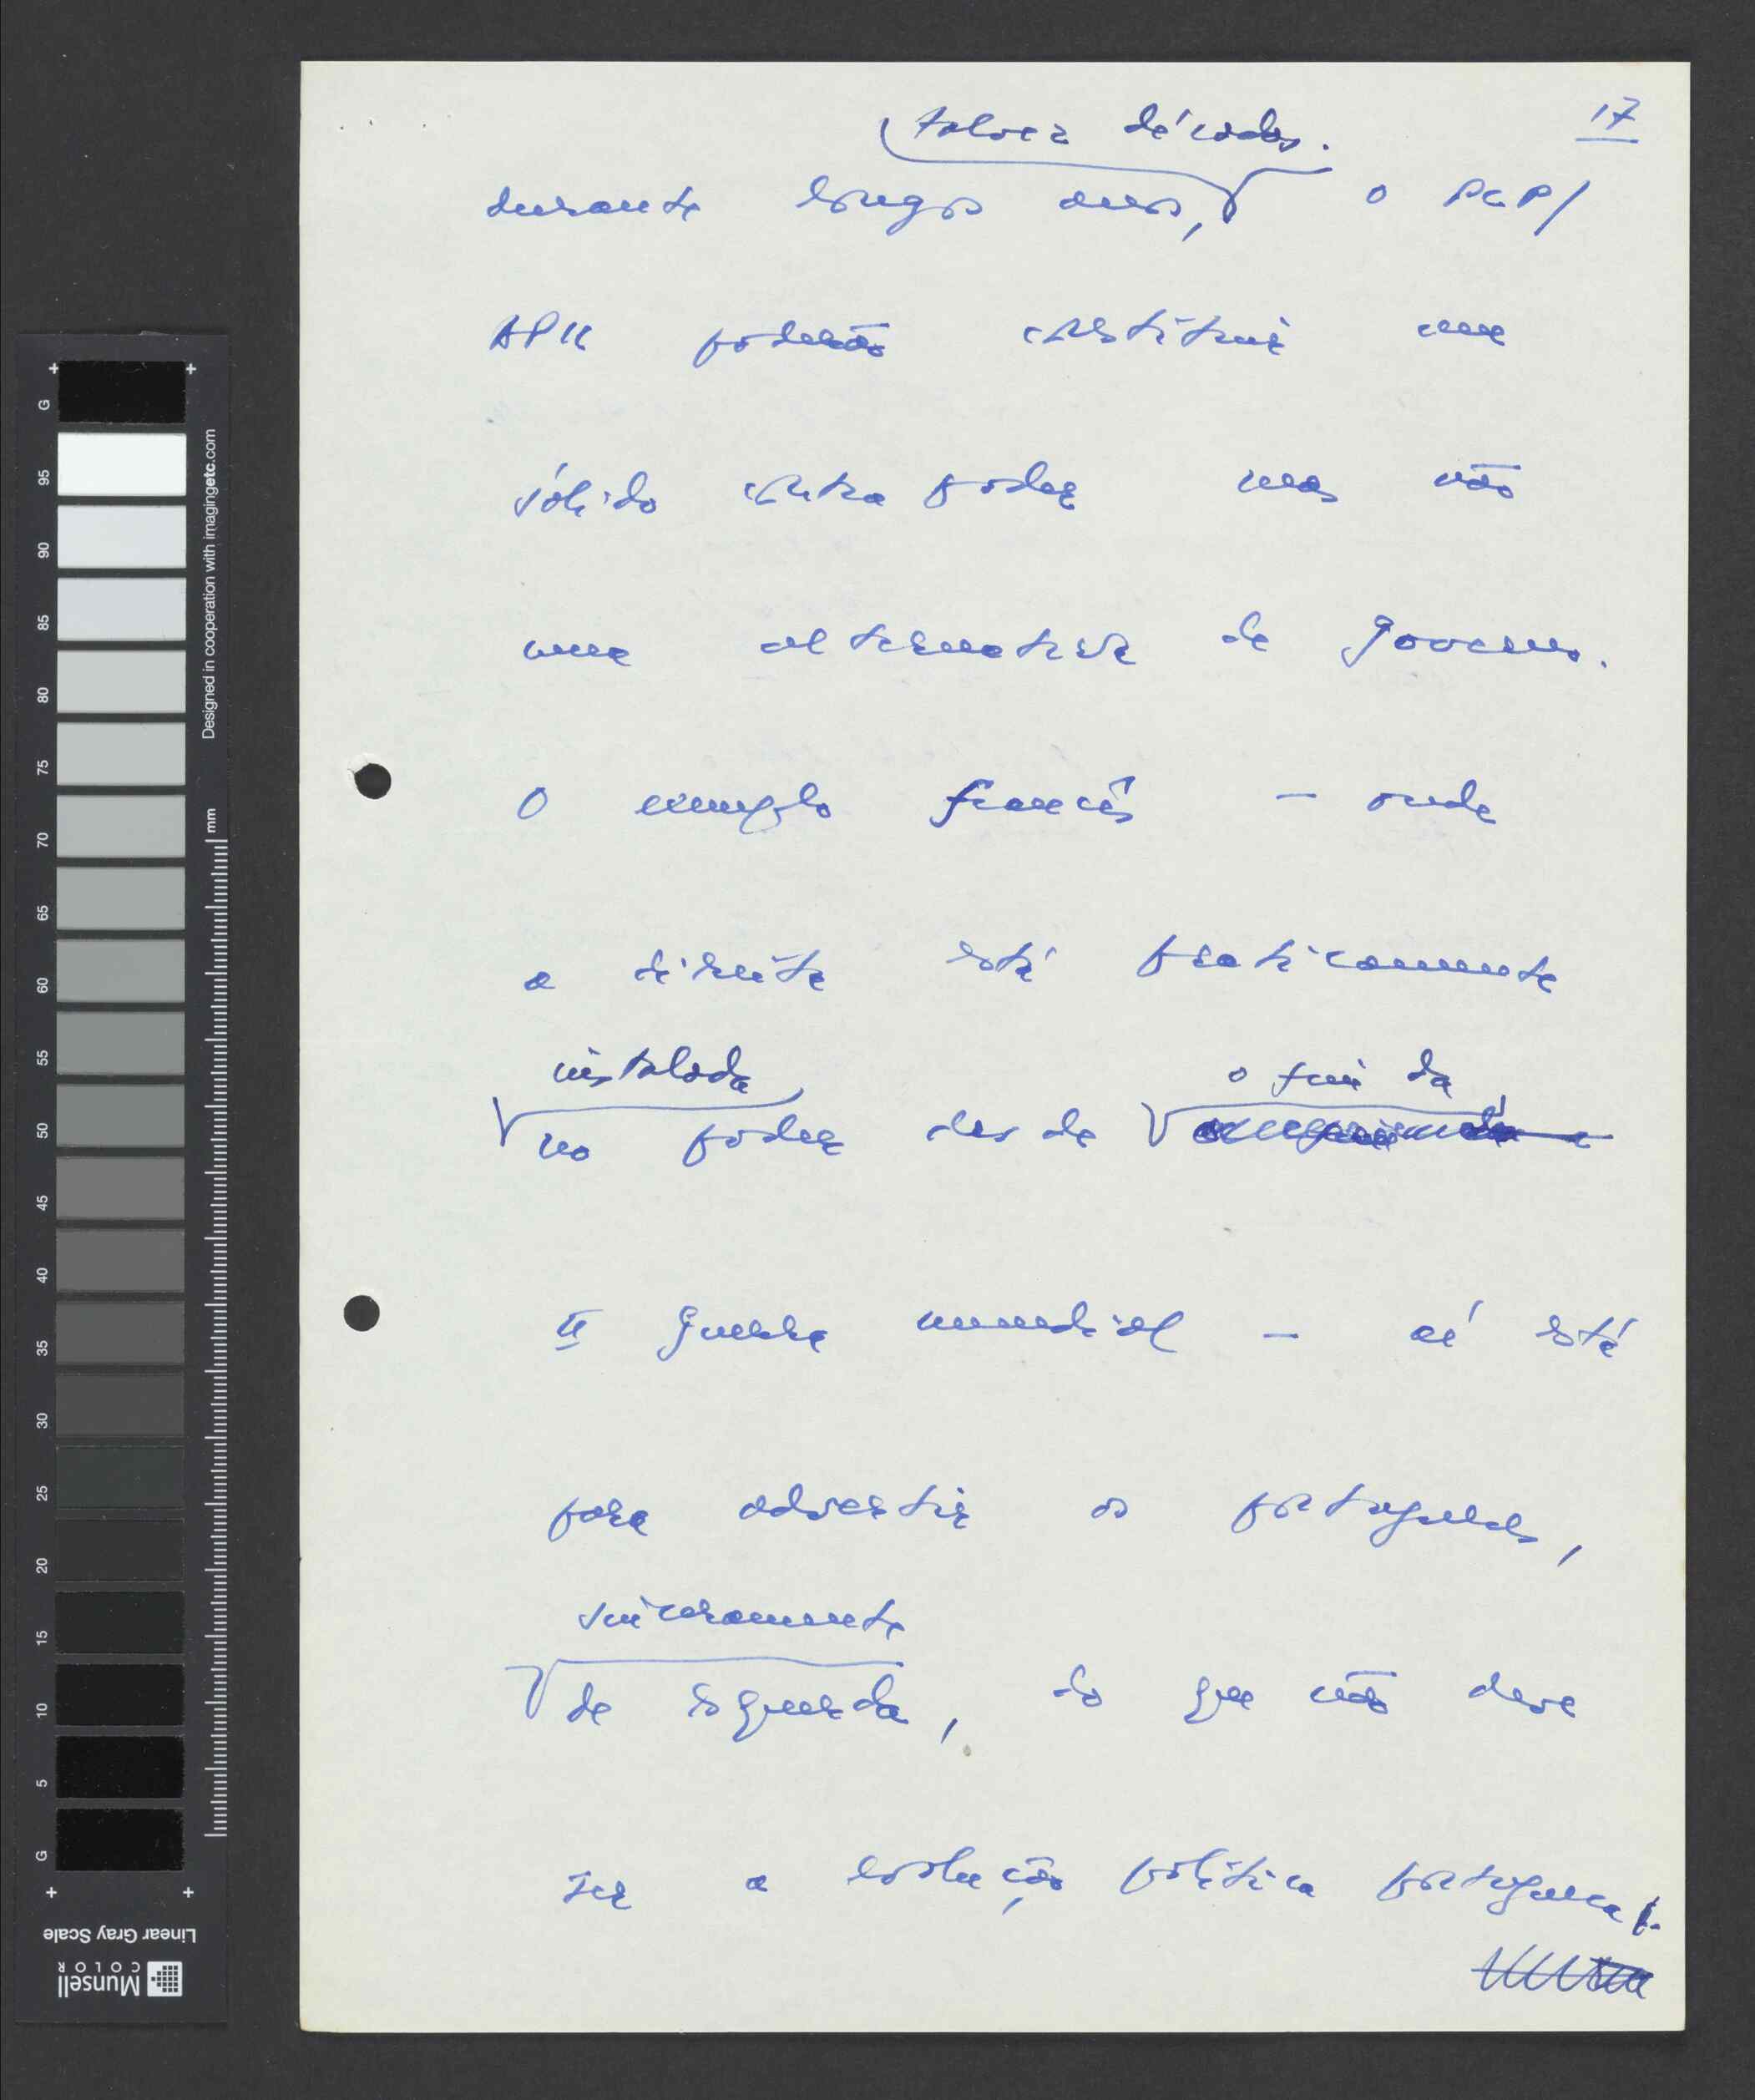 17
talvez décadas.
durante longos anos, o PCP/
APU poderão constituir um
sólido contra poder mas não
uma alternativa de Governo.
O exemplo francês — onde
a direita está praticamente
instalada o fim da
no poder desde
II Guerra mundial — aí está
para advertir os portugueses,
sinceramente
de esquerda, do que não deve
ser a evolução política portuguesa.
G 95 90 85 80 75 70 65 60 55 50 45 40 35 30 25 20 15 10 5 G
Designed in cooperation with imagingetc.com
mm
Linear Gray Scale
Munsell
COLOR